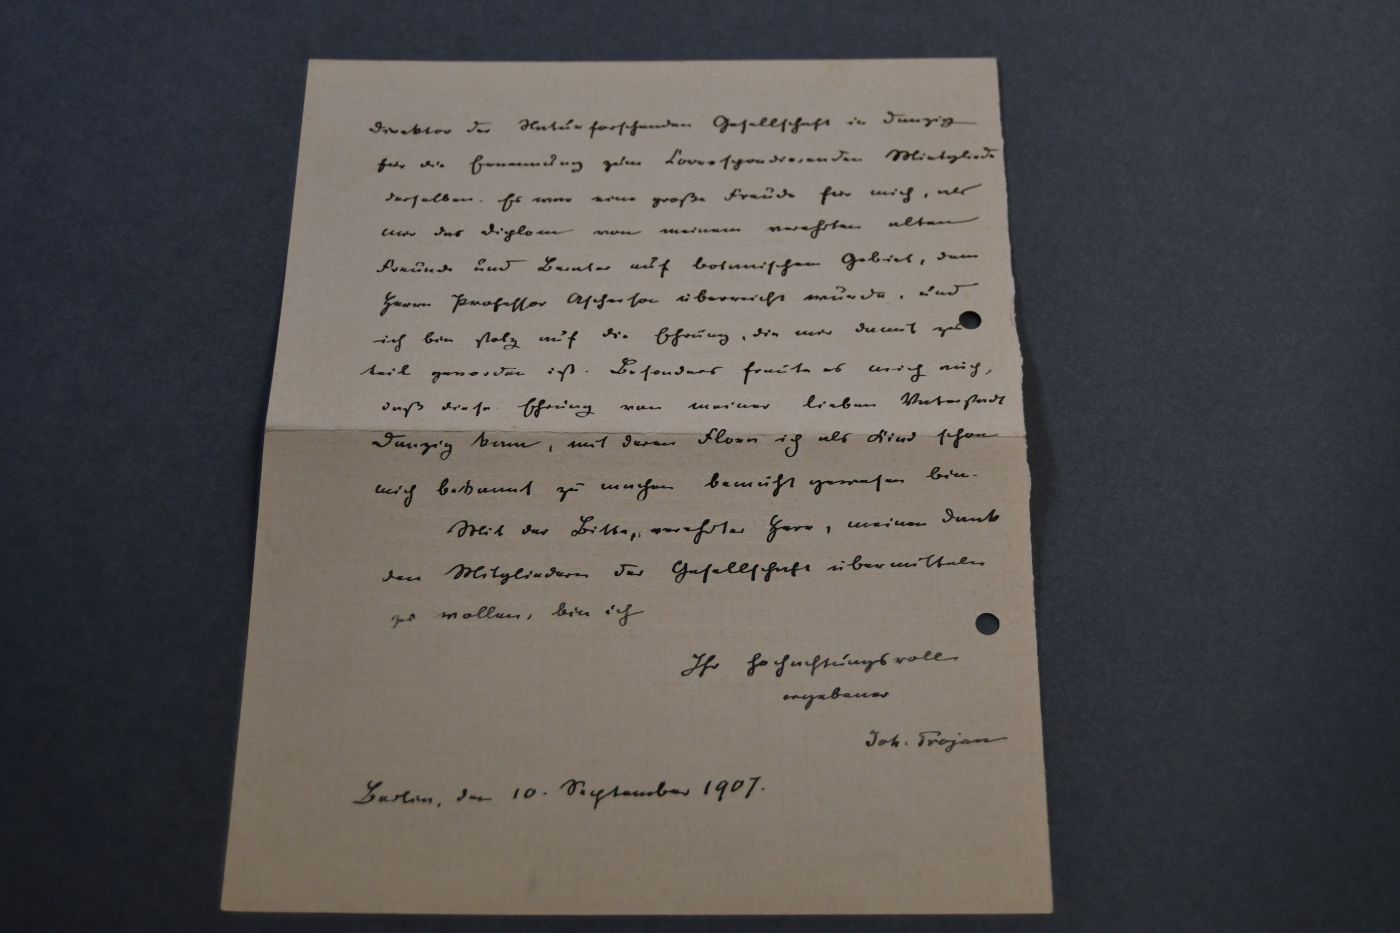 Direktor der Naturforschenden Gesellschaft in Danzig
für die Ernennung zum Correspondierenden Mietgliede
derselben. Es war eine große Freude für mich, als
mir das Diplom von meinem verehrten alten
Freunde und Berater auf botanischem Gebiet, dem
Herrn Professor Ascherson überreicht wurde, und
ich bin stolz auf die Ehrung, die mir damit zu
teil geworden ist. Besonders freute es mich auch,
daß diese Ehrung von meiner lieben Vaterstadt
Danzig kam, mit deren Flora ich als Kind schon
mich bekannt zu machen bemüht gewesen bin.
Mit der Bitte, verehrter Herr, meinen Dank
den Mitgliedern der Gesellschaft übermitteln
zu wollen, bin ich
Ihr hochachtungsvoll
ergebener
Joh. Trojan
Berlin, den 10. September 1907.